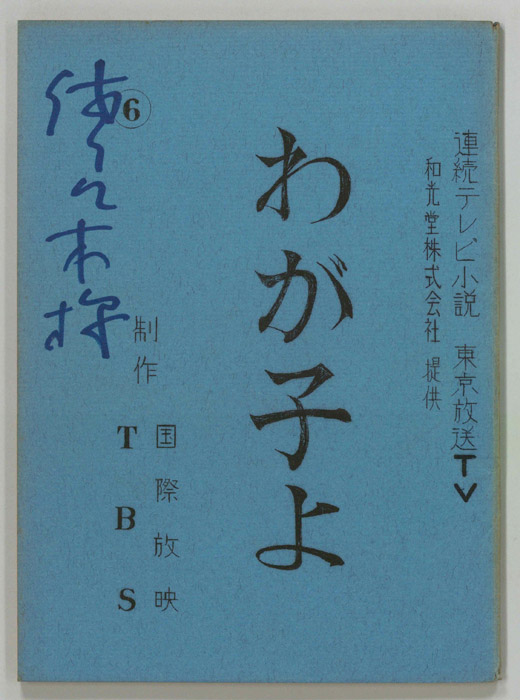 連続テレビ小説 東京放送TV
和光堂株式会社 提供
わが子よ
⑥
制作
国際放映
TBS